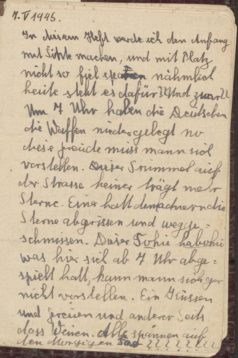 7. V 1945.
In diesem Heft werde ich den Anfang
mit Tinte machen, und mit Platz
nicht so fiel nähmlich
heite steht es dafür
Um 7 Uhr haben die Deutschen
die Waffen niedergelegt no
diese freide muss mann sich
vorstellen. Dieser Trimmel auf
der Strasse keiner trägt mehr
Sterne. Einer hatt dem andern die
Sterne abgerissen und wegge-
schmissen. Dieser Tohu habohu
was hier sich ab 7 Uhr abge-
spielt hatt, kann mann sich gar
nicht vorstellen. Ein Küssen
und freien und anderer Seits
das Weinen. Alle spannen auf
den Morgigen Tag